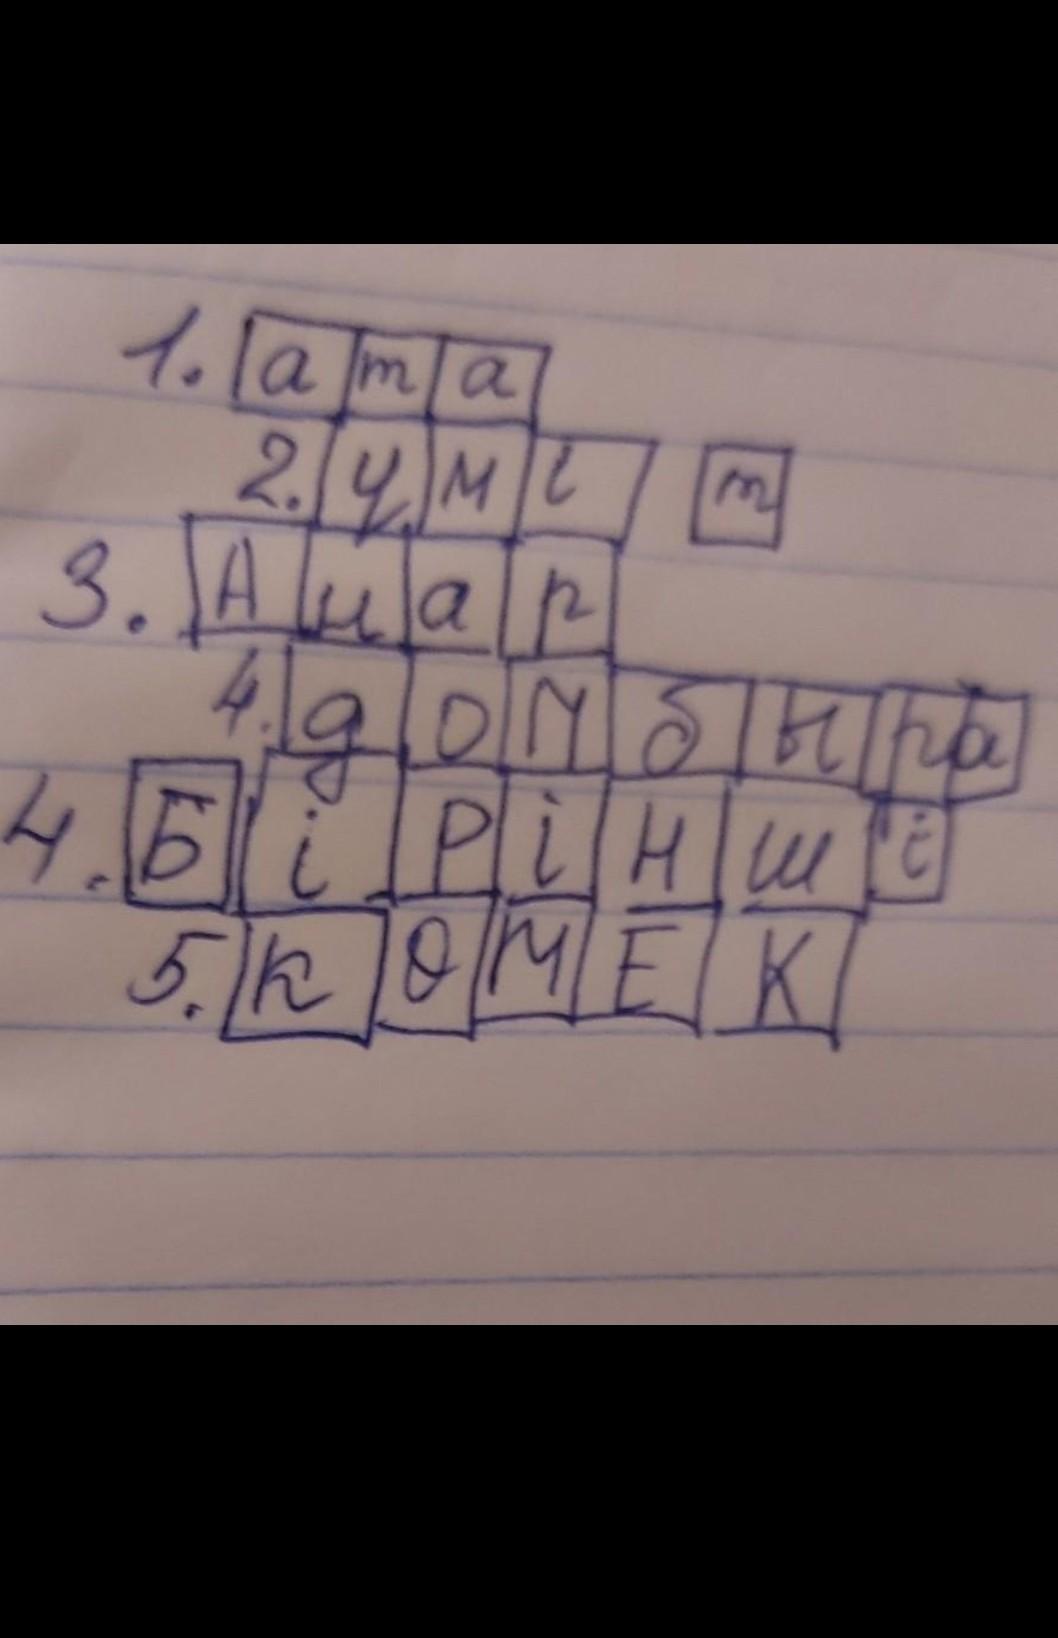 1. ата
2. умі т
3. Анар
4. домбыра
4. Бірінші
5. КӨМЕК